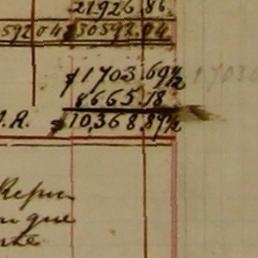 21926.86.
592 04 30592.04
$1703.69½
8665.18
A.R. $10,368.87½
Repu
que